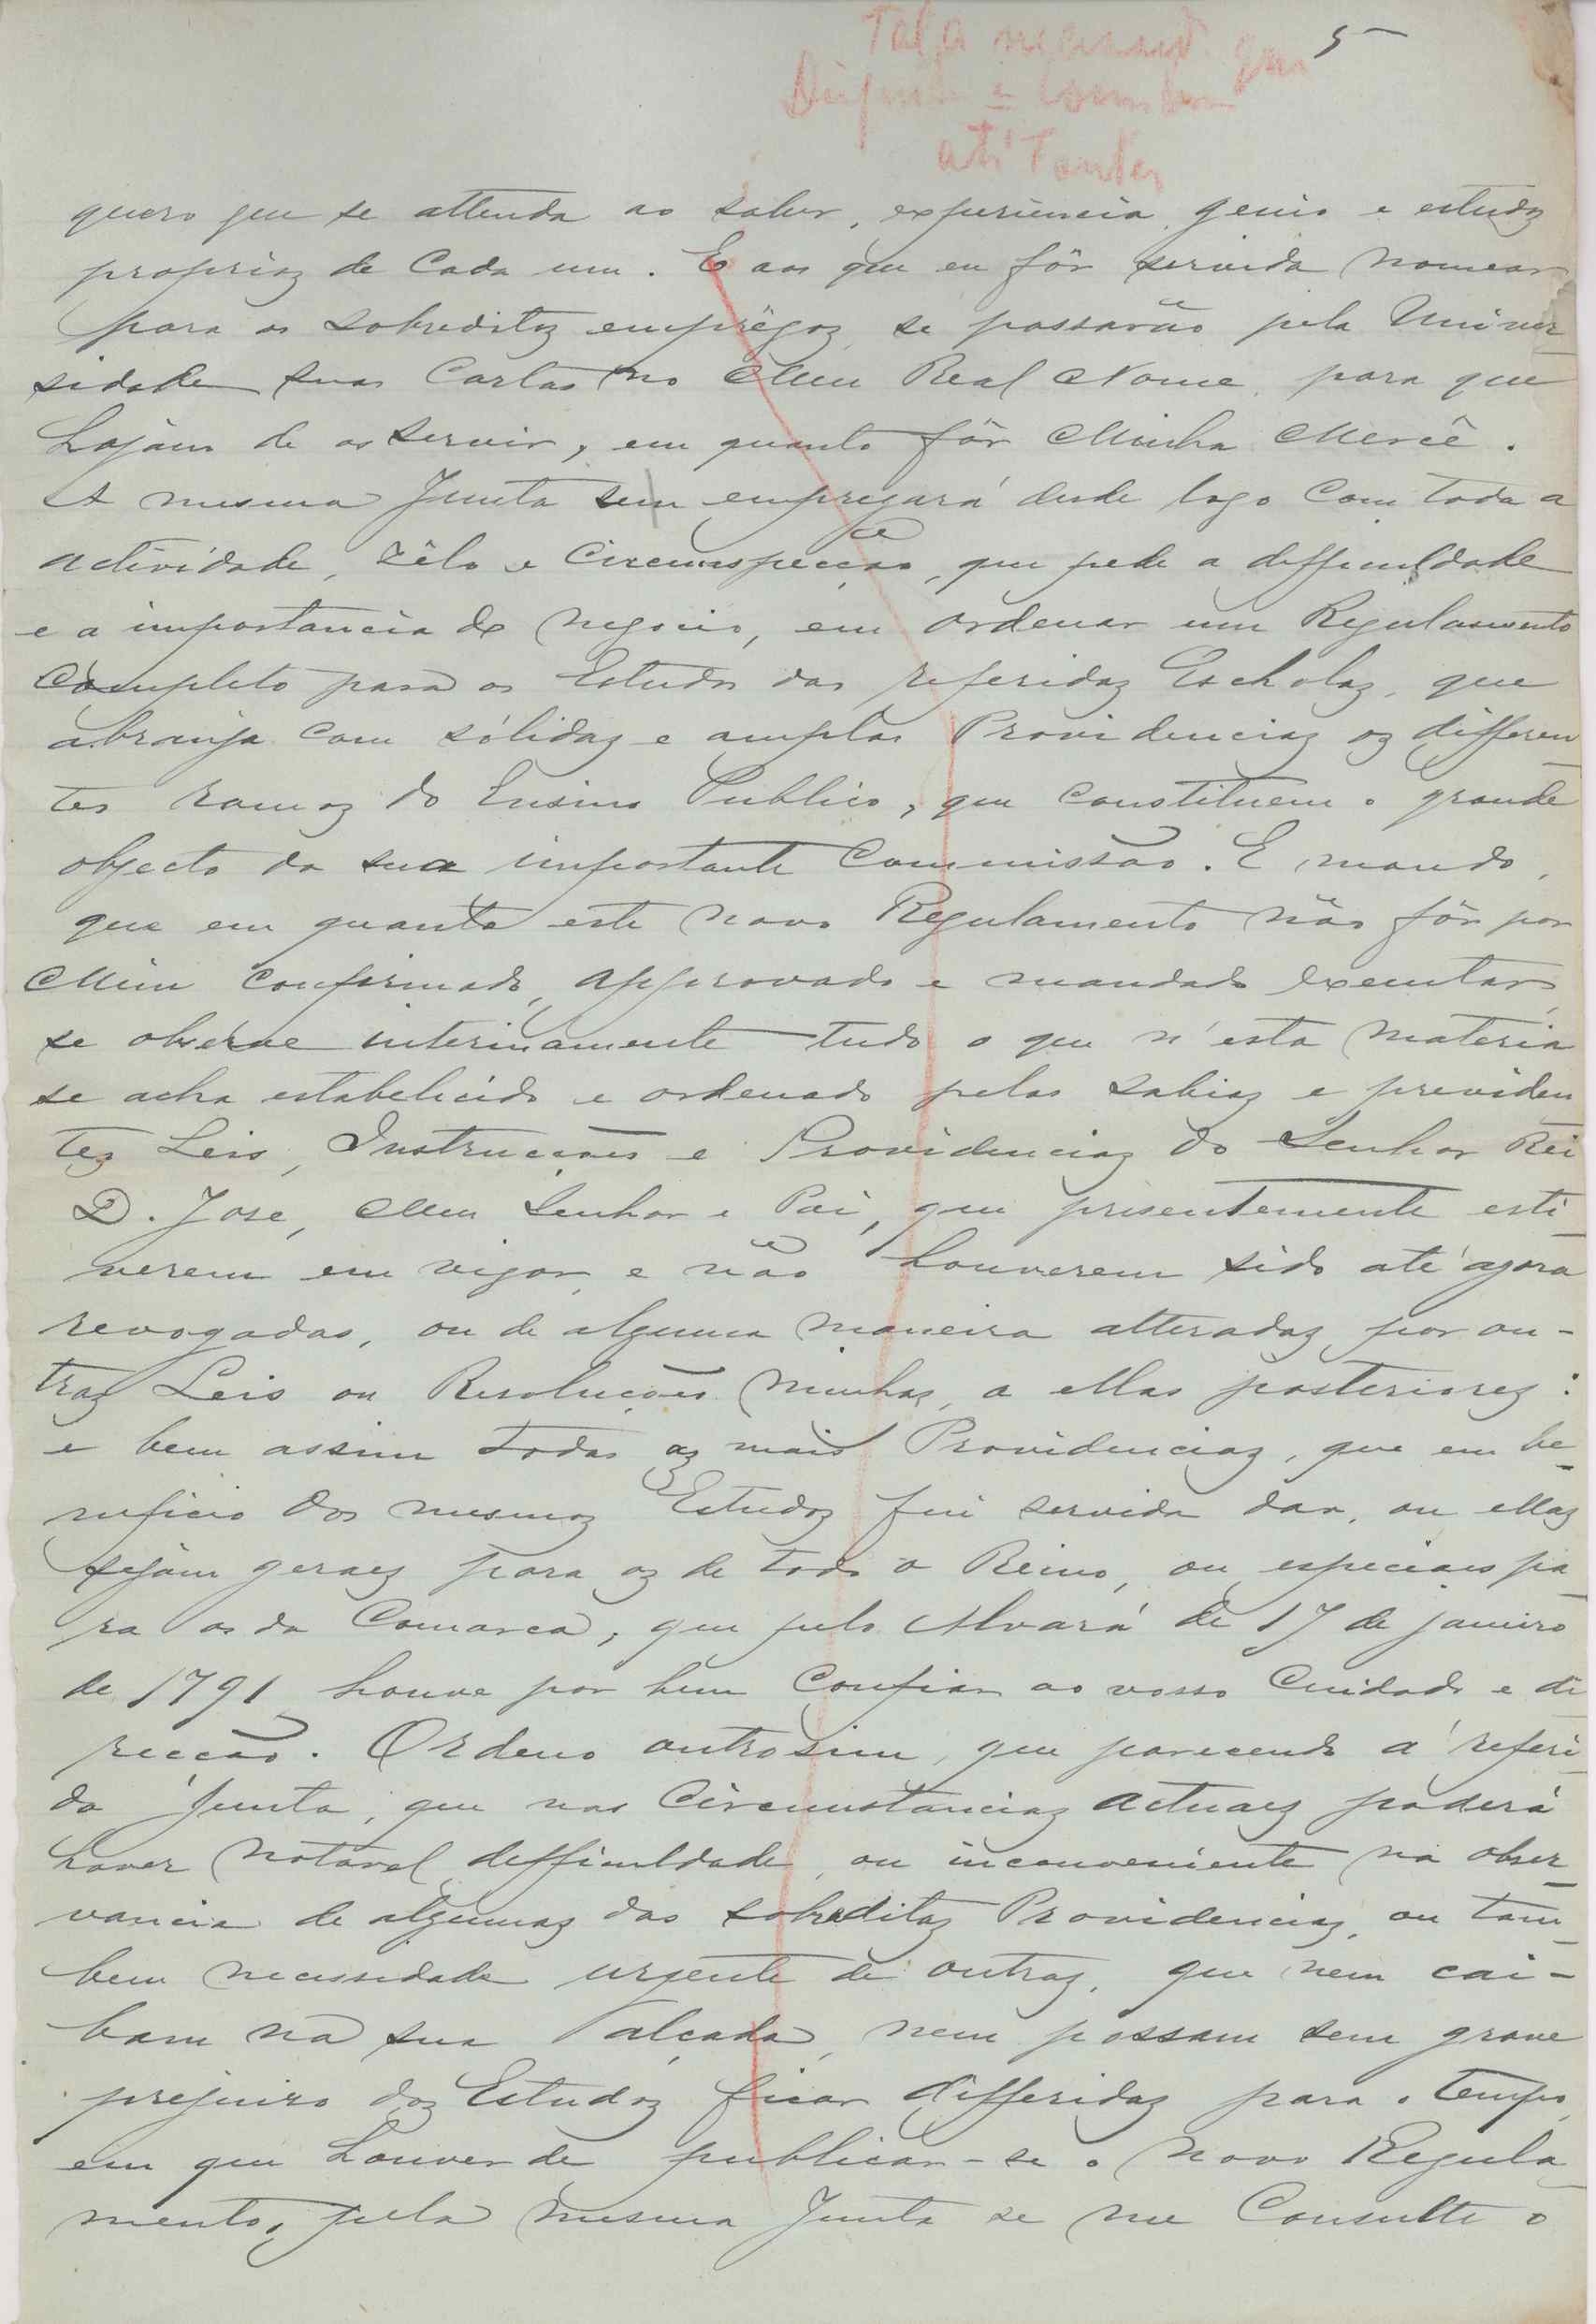 5
até
quero que se attenda ao saber, experiencia, genio e estudos
proprios de cada um. E aos que eu fôr servida nomear
para os sobreditos emprêgos, se passarão pela Univer
sidade suas Cartas no Meu Real Nome, para que
hajam de os servir, em quanto fôr Minha Mercê.
A mesma Junta se empregará desde logo com toda a
actividade, zêlo e circumspecção, que pede a difficuldade
e a importancia do negocio, em ordenar um Regulamento
completo para os Estudos das referidas Escholas, que
abranja com sólidas e amplas Providencias os differen
tes ramos do Ensino Publico, que constituem o grande
objecto da sua importante Commissão. E mando,
que em quanto este novo Regulamento não fôr por
Mim confirmado, approvado e mandado executar,
se observe interinamente tudo o que n'esta materia
se acha estabelecido e ordenado pelas sabias e previden
tes Leis, Instrucções e Providencias do Senhor Rei
D. José, Meu Senhor e Pai, que presentemente esti
verem em vigor, e não houverem sido até agora
revogadas, ou de alguma maneira alteradas por ou-
tras Leis ou Resoluções minhas, a ellas posteriores:
e bem assim todas as mais Providencias, que em be
neficio dos mesmos Estudos fui servida dar, ou ellas
sejam geraes para os de todo o Reino, ou especiaes pa
ra os da Comarca, que pelo Alvará de 17 de janeiro
de 1791 houve por bem confiar ao vosso cuidado e di
recção. Ordeno outrosim, que parecendo á referi
da Junta, que nas circumstancias actuaes poderá
haver notavel difficuldade, ou inconveniente na obser
vancia de algumas das sobreditas Providencias, ou tam
bem necessidade urgente de outras, que nem cai-
bam na sua alçada, nem possam sem grave
prejuizo dos Estudos ficar differidas para o tempo,
em que houver de publicar-se o novo Regula
mento, pela mesma Junta se me Consulte o